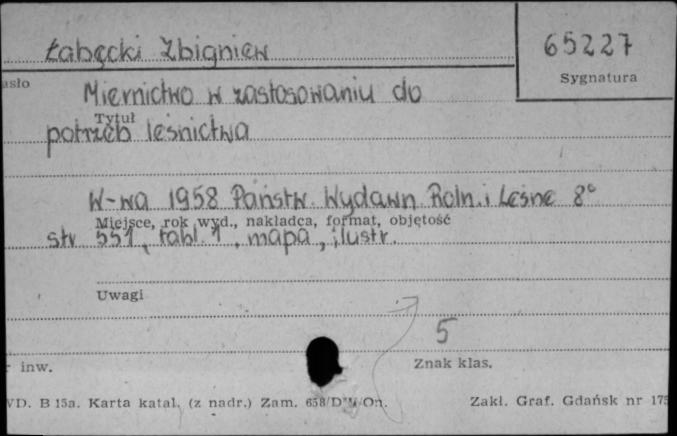 Łabęcki Zbigniew
65227
Sygnatura
asło
Miernictwo w zastosowaniu do
Tytuł
potrzeb leśnictwa
W-wa 1958 Państw. Wydawn. Roln. i Leśne 8°
Miejsce, rok wyd., nakładca, format, objętość
str 551, tabl. 1, mapa, ilustr.
Uwagi
5
r inw.
Znak klas.
WD. B 15a. Karta katal. (z nadr.) Zam.
Zakł. Graf. Gdańsk nr 175